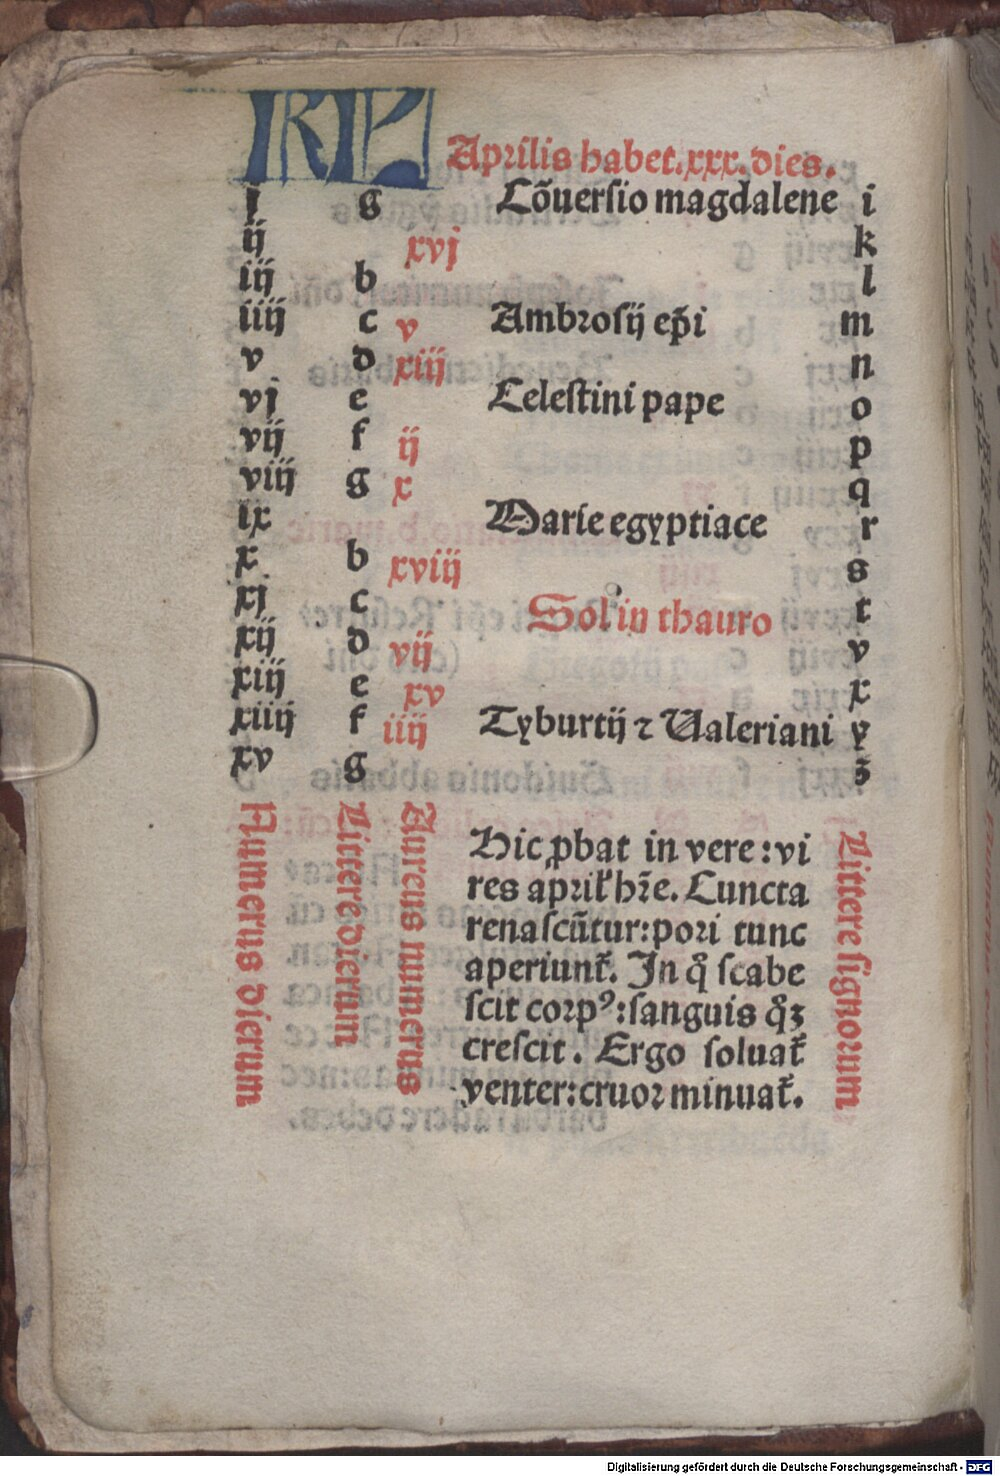 KL Aprilis habet.xxx.dies.
j g Cōuersio magdalene i
ij xvj k
iij b l
iiij c v Ambrosij ep̄i m
v d xiij n
vj e Celestini pape o
vij f ij p
viij g x q
ix Marie egyptiace r
x b xviij s
xj c Sol in thauro t
xij d vij v
xiij e xv x
xiiij f iiij Tyburtij ⁊ Ualeriani y
xv g ꝫ
Numerus dierum
Littere dierum
Aureus numerus
Hic ꝓbat in vere:vi
res april' hr̄e. Cuncta
renascūtur:pori tunc
aperiunt᷑. In q̊ scabe
scit corpꝰ:sanguis q̊ꝫ
crescit. Ergo soluat᷑
venter:cruor minuat᷑.
Littere signorum
Digitalisierung gefördert durch die Deutsche Forschungsgemeinschaft - DFG